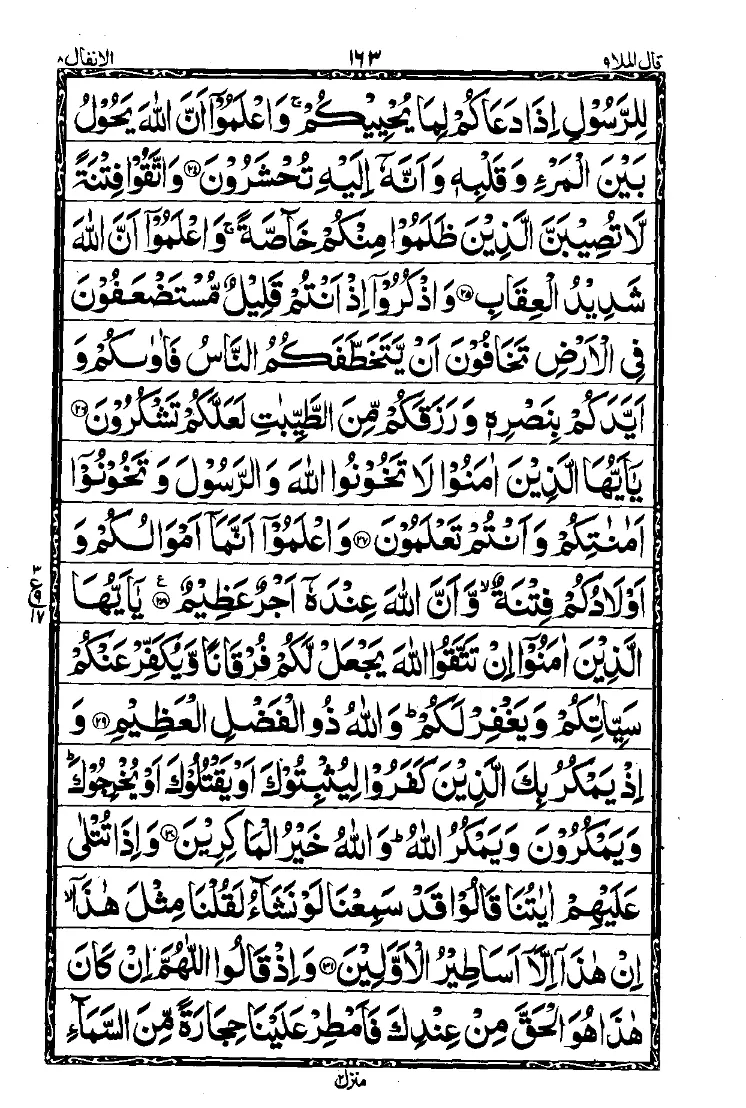 قال الملا ٩ ١٦٣ الانفال ٨
لِلرَّسُوْلِ اِذَا دَعَاكُمْ لِمَا يُحْيِيْكُمْ ۚ وَاعْلَمُوْۤا اَنَّ اللّٰهَ يَحُوْلُ
بَيْنَ الْمَرْءِ وَ قَلْبِهٖ وَ اَنَّهٗۤ اِلَيْهِ تُحْشَرُوْنَ ﴿۲۴﴾ وَاتَّقُوْا فِتْنَةً
لَّا تُصِيْبَنَّ الَّذِيْنَ ظَلَمُوْا مِنْكُمْ خَآصَّةً ۚ وَاعْلَمُوْۤا اَنَّ اللّٰهَ
شَدِيْدُ الْعِقَابِ ﴿۲۵﴾ وَ اذْكُرُوْۤا اِذْ اَنْتُمْ قَلِيْلٌ مُّسْتَضْعَفُوْنَ
فِي الْاَرْضِ تَخَافُوْنَ اَنْ يَّتَخَطَّفَكُمُ النَّاسُ فَاٰوٰىكُمْ وَ
اَيَّدَكُمْ بِنَصْرِهٖ وَ رَزَقَكُمْ مِّنَ الطَّيِّبٰتِ لَعَلَّكُمْ تَشْكُرُوْنَ ﴿۲۶﴾
يٰۤاَيُّهَا الَّذِيْنَ اٰمَنُوْا لَا تَخُوْنُوا اللّٰهَ وَ الرَّسُوْلَ وَ تَخُوْنُوْۤا
اَمٰنٰتِكُمْ وَ اَنْتُمْ تَعْلَمُوْنَ ﴿۲۷﴾ وَ اعْلَمُوْۤا اَنَّمَاۤ اَمْوَالُكُمْ وَ
اَوْلَادُكُمْ فِتْنَةٌ ۙ وَّ اَنَّ اللّٰهَ عِنْدَهٗۤ اَجْرٌ عَظِيْمٌ ﴿۲۸﴾ ع يٰۤاَيُّهَا
۳ ع ۹ ۱۷
الَّذِيْنَ اٰمَنُوْۤا اِنْ تَتَّقُوا اللّٰهَ يَجْعَلْ لَّكُمْ فُرْقَانًا وَّ يُكَفِّرْ عَنْكُمْ
سَيِّاٰتِكُمْ وَ يَغْفِرْ لَكُمْ ؕ وَ اللّٰهُ ذُو الْفَضْلِ الْعَظِيْمِ ﴿۲۹﴾ وَ
اِذْ يَمْكُرُ بِكَ الَّذِيْنَ كَفَرُوْا لِيُثْبِتُوْكَ اَوْ يَقْتُلُوْكَ اَوْ يُخْرِجُوْكَ ؕ
وَ يَمْكُرُوْنَ وَ يَمْكُرُ اللّٰهُ ؕ وَ اللّٰهُ خَيْرُ الْمَاكِرِيْنَ ﴿۳۰﴾ وَ اِذَا تُتْلٰى
عَلَيْهِمْ اٰيٰتُنَا قَالُوْا قَدْ سَمِعْنَا لَوْ نَشَآءُ لَقُلْنَا مِثْلَ هٰذَاۤ ۙ
اِنْ هٰذَاۤ اِلَّاۤ اَسَاطِيْرُ الْاَوَّلِيْنَ ﴿۳۱﴾ وَ اِذْ قَالُوا اللّٰهُمَّ اِنْ كَانَ
هٰذَا هُوَ الْحَقَّ مِنْ عِنْدِكَ فَاَمْطِرْ عَلَيْنَا حِجَارَةً مِّنَ السَّمَآءِ
منزل ۲